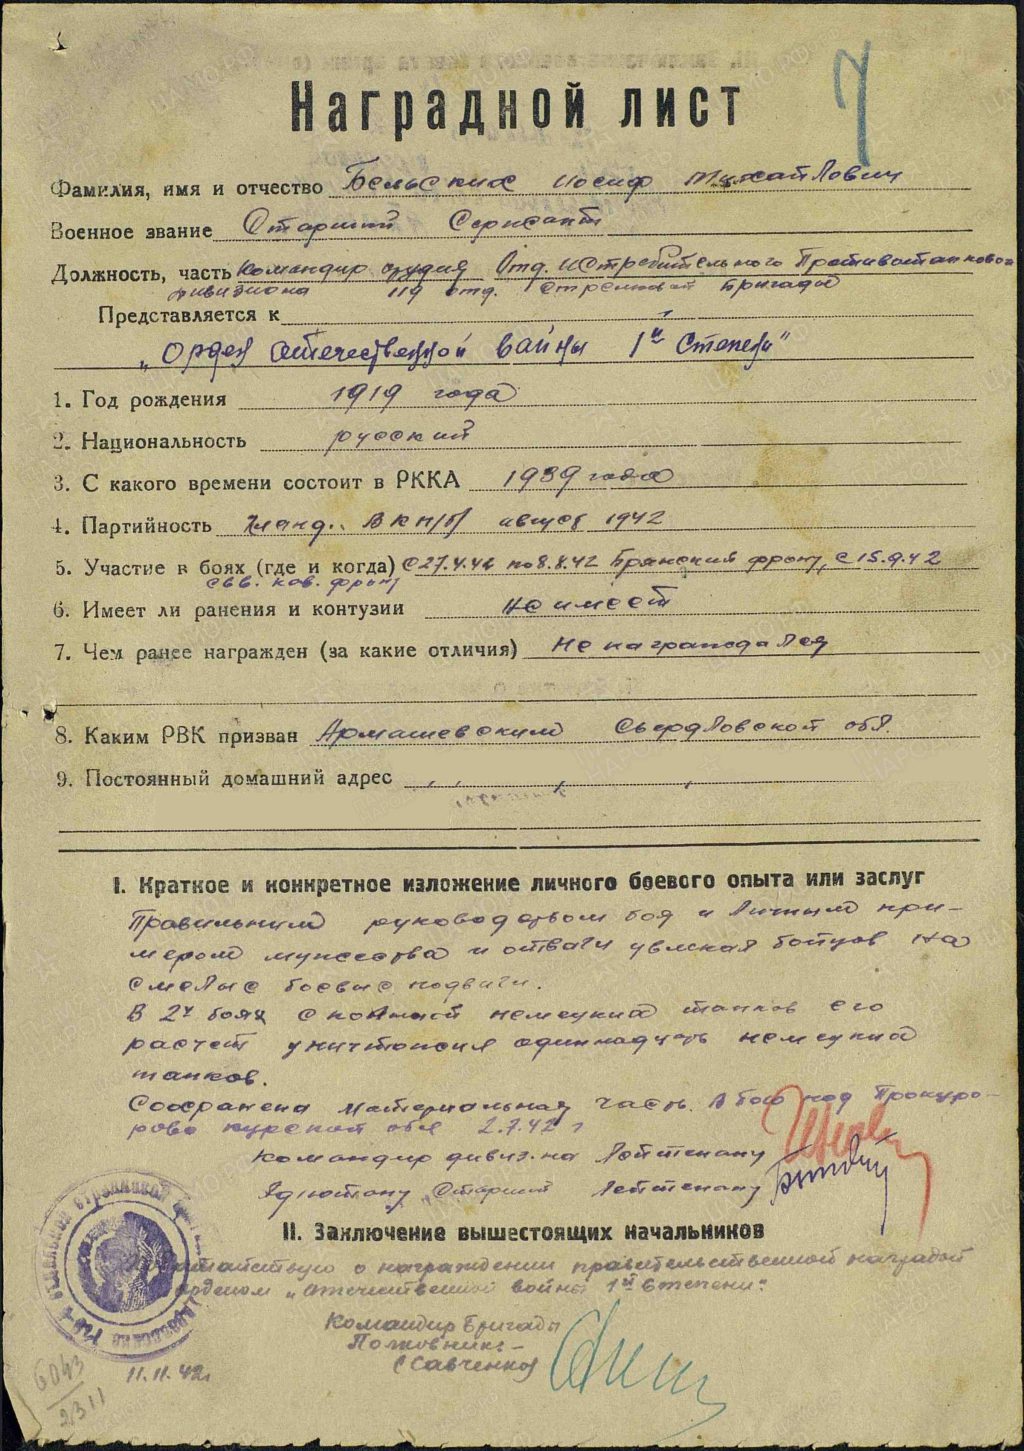 7
Наградной лист
Фамилия, имя и отчество Бельских Иосиф Михайлович
Военное звание Старший Сержант
Должность, часть Командир орудия Отд. истребительного Противотанкового
дивизиона 119 отд. Стрелковой Бригады
Представляется к
„Орден Отечественной войны 1й Степени"
1. Год рождения 1919 года
2. Национальность русский
3. С какого времени состоит в РККА 1939 года
4. Партийность Канд. ВКП/б/ август 1942
5. Участие в боях (где и когда) с 27.4.42 по 8.8.42 Брянский фронт, с 15.9.42
фронт
6. Имеет ли ранения и контузии Не имеет
7. Чем ранее награжден (за какие отличия) Не награждался
8. Каким РВК призван Свердловской обл.
9. Постоянный домашний адрес
I. Краткое и конкретное изложение личного боевого опыта или заслуг
Правильным руководством боя и Личным при-
мером мужества и отваги увлекая бойцов на
смелые боевые подвиги.
В 2х боях с колонной немецких танков его
расчет уничтожил одиннадцать немецких
танков.
Сохранена материальная часть. В бою под Прокуро-
рово курской обл 2.7.42 г
Командир дивиз-на Лейтенант
Адъютант „Старший Лейтенант
II. Заключение вышестоящих начальников
Ходатайствую о награждении правительственной наградой
орденом „Отечественной войны 1й степени".
Командир Бригады
Полковник –
(Савченко)
11.11.42г
6043
23 11